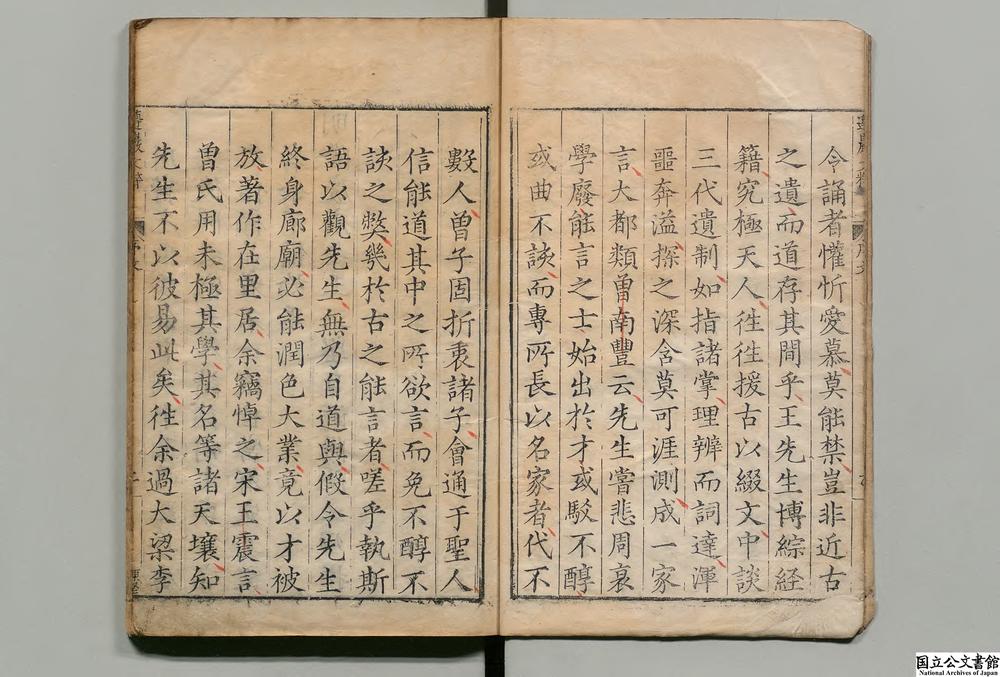 今誦者懽忻愛慕莫能禁豈非近古
之遺而道存其間乎王先生博綜経
籍究極天人徃徃援古以綴文中談
三代遺制如指諸掌理辨而詞達渾
噩奔溢探之深含莫可涯測成一家
言大都類曾南豐云先生嘗悲周衰
學廢能言之士始出於才或駁不醇
或曲不該而專所長以名家者代不
數人曾子固折衷諸子會通于聖人
信能道其中之所欲言而免不醇不
該之獘幾於古之能言者嗟乎執斯
語以觀先生無乃自道與假令先生
終身廊廟必能潤色大業竟以才被
放著作在里居余竊悼之宋王震言
曾氏用未極其學其名等諸天壤知
先生不以彼易此矣徃余過大梁李
国立公文書館
National Archives of Japan